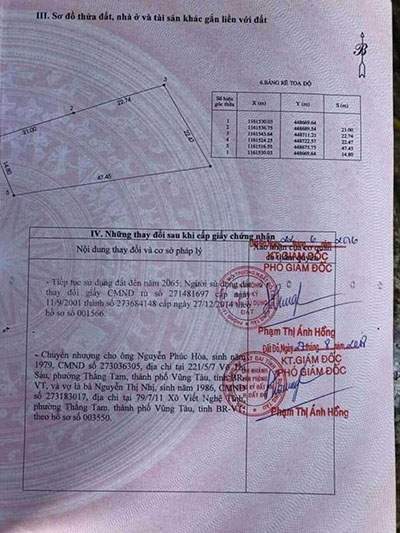 III. Sơ đồ thửa đất, nhà ở và tài sản khác gắn liền với đất
B
6.BẢNG KÊ TOẠ ĐỘ
Số hiệu góc thửa X (m) Y (m) S (m)
1 1161530.03 448669.64
2 1161536.75 448689.54 21.00
3 1161543.64 448711.21 22.74
4 1161524.25 448722.57 22.47
5 1161516.55 448675.75 47.45
1 1161530.03 448669.64 14.80
3
2
22.74
21.00
22.47
14.80
47.45
IV. Những thay đổi sau khi cấp giấy chứng nhận
Nội dung thay đổi và cơ sở pháp lý
Xác nhận của cơ quan
Đất Đỏ, 6 2016
KT.GIÁM ĐỐC
PHÓ GIÁM ĐỐC
- Tiếp tục sử dụng đất đến năm 2065; Người sử dụng đất
thay đổi giấy CMND từ số 271481697 cấp ngày
11/9/2001 thành số 273684148 cấp ngày 27/12/2014 theo
hồ sơ số 001566.
Phạm Thị Ánh Hồng
Đất Đỏ, Ngày 27 8 2018
KT.GIÁM ĐỐC
PHÓ GIÁM ĐỐC
- Chuyển nhượng cho ông Nguyễn Phúc Hòa, sinh năm
1979, CMND số 273036305, địa chỉ tại 221/5/7 Võ Thị
Sáu, phường Thắng Tam, thành phố Vũng Tàu, tỉnh BR-
VT, và vợ là bà Nguyễn Thị Nhị, sinh năm 1986, CMND
số 273183017, địa chỉ tại 79/7/11 Xô Viết Nghệ Tĩnh,
phường Thắng Tam, thành phố Vũng Tàu, tỉnh BR-VT
theo hồ sơ số 003550.
Phạm Thị Ánh Hồng